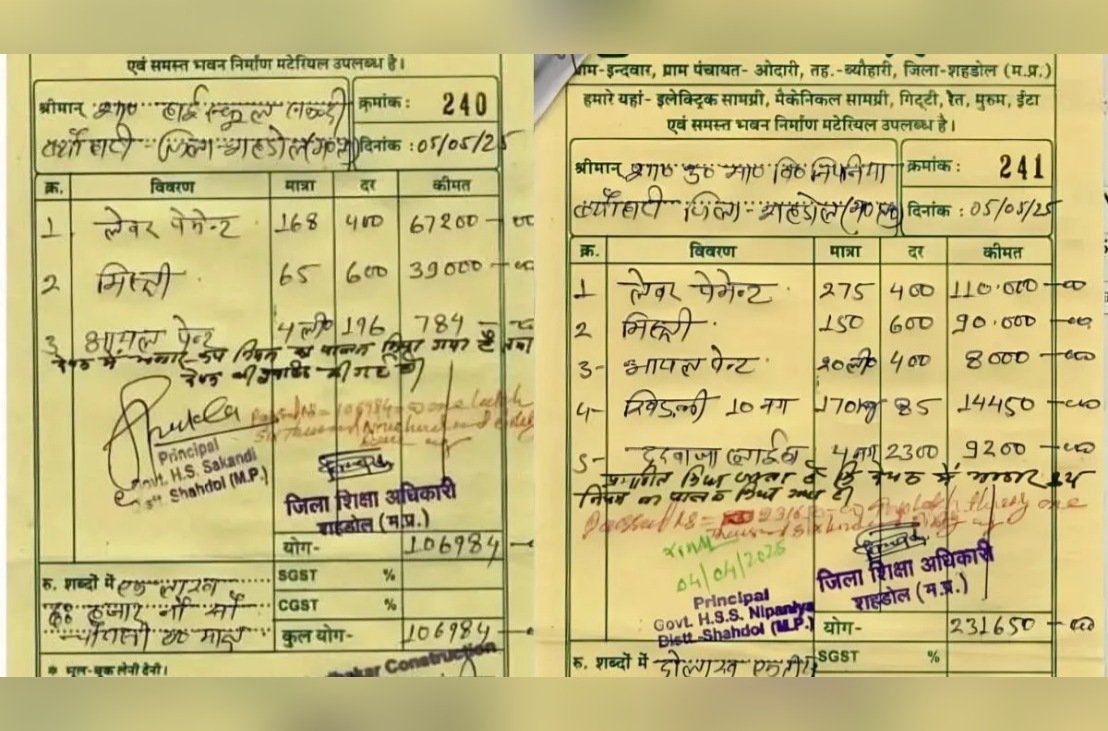 एवं समस्त भवन निर्माण मटेरियल उपलब्ध है।
श्रीमान् शा० हाई स्कूल सकन्दी
क्रमांक: 240
ब्यौहारी जिला-शहडोल (म०प्र०)
दिनांक : 05/05/25
क्र. विवरण मात्रा दर कीमत
1 लेबर पेमेन्ट 168 400 67200-00
2 मिस्त्री 65 600 39000-00
3 आयल पेन्ट 4 ली० 196 784
देयक में भण्डार क्रय नियम का पालन किया गया है तथा
की गई है
Passed RS = 106984=00 one lakh
Six Thousand Nine hundred and eighty
four
Principal
Govt. H.S. Sakandi
Distt. Shahdol (M.P.)
जिला शिक्षा अधिकारी
शहडोल (म.प्र.)
योग- 106984
रु. शब्दों में एक लाख
छः हजार नौ सौ
चौरासी रू० मात्र
SGST %
CGST %
कुल योग- 106984
* भूल-चूक लेनी देनी।
Construction
ग्राम-इन्दवार, ग्राम पंचायत- ओदारी, तह.-ब्यौहारी, जिला-शहडोल (म.प्र.)
हमारे यहां- इलेक्ट्रिक सामग्री, मैकेनिकल सामग्री, गिट्टी, रेत, मुरूम, ईंटा
एवं समस्त भवन निर्माण मटेरियल उपलब्ध है।
श्रीमान् शा० उ० मा० वि० निपनिया
क्रमांक: 241
ब्यौहारी जिला-शहडोल (म०प्र०)
दिनांक : 05/05/25
क्र. विवरण मात्रा दर कीमत
1 लेबर पेमेन्ट 275 400 110.000-00
2 मिस्त्री 150 600 90.000-00
3- आयल पेन्ट 20 ली० 400 8000-00
4- खिड़की 10 नग 170 kg 85 14450-00
5- दरवाजा 4 नग 2300 9200-00
प्रमाणित किया जाता है कि देयक में भण्डार क्रय
नियम का पालन किया गया है।
Passed RS = 231650=00 Two lakh thirty one
Thousand Six hundred fifty
04/04/2025
Principal
Govt. H.S.S. Nipaniya
Distt-Shahdol (M.P.)
जिला शिक्षा अधिकारी
शहडोल (म.प्र.)
योग- 231650-00
रु. शब्दों में दो लाख एकतीस
SGST %